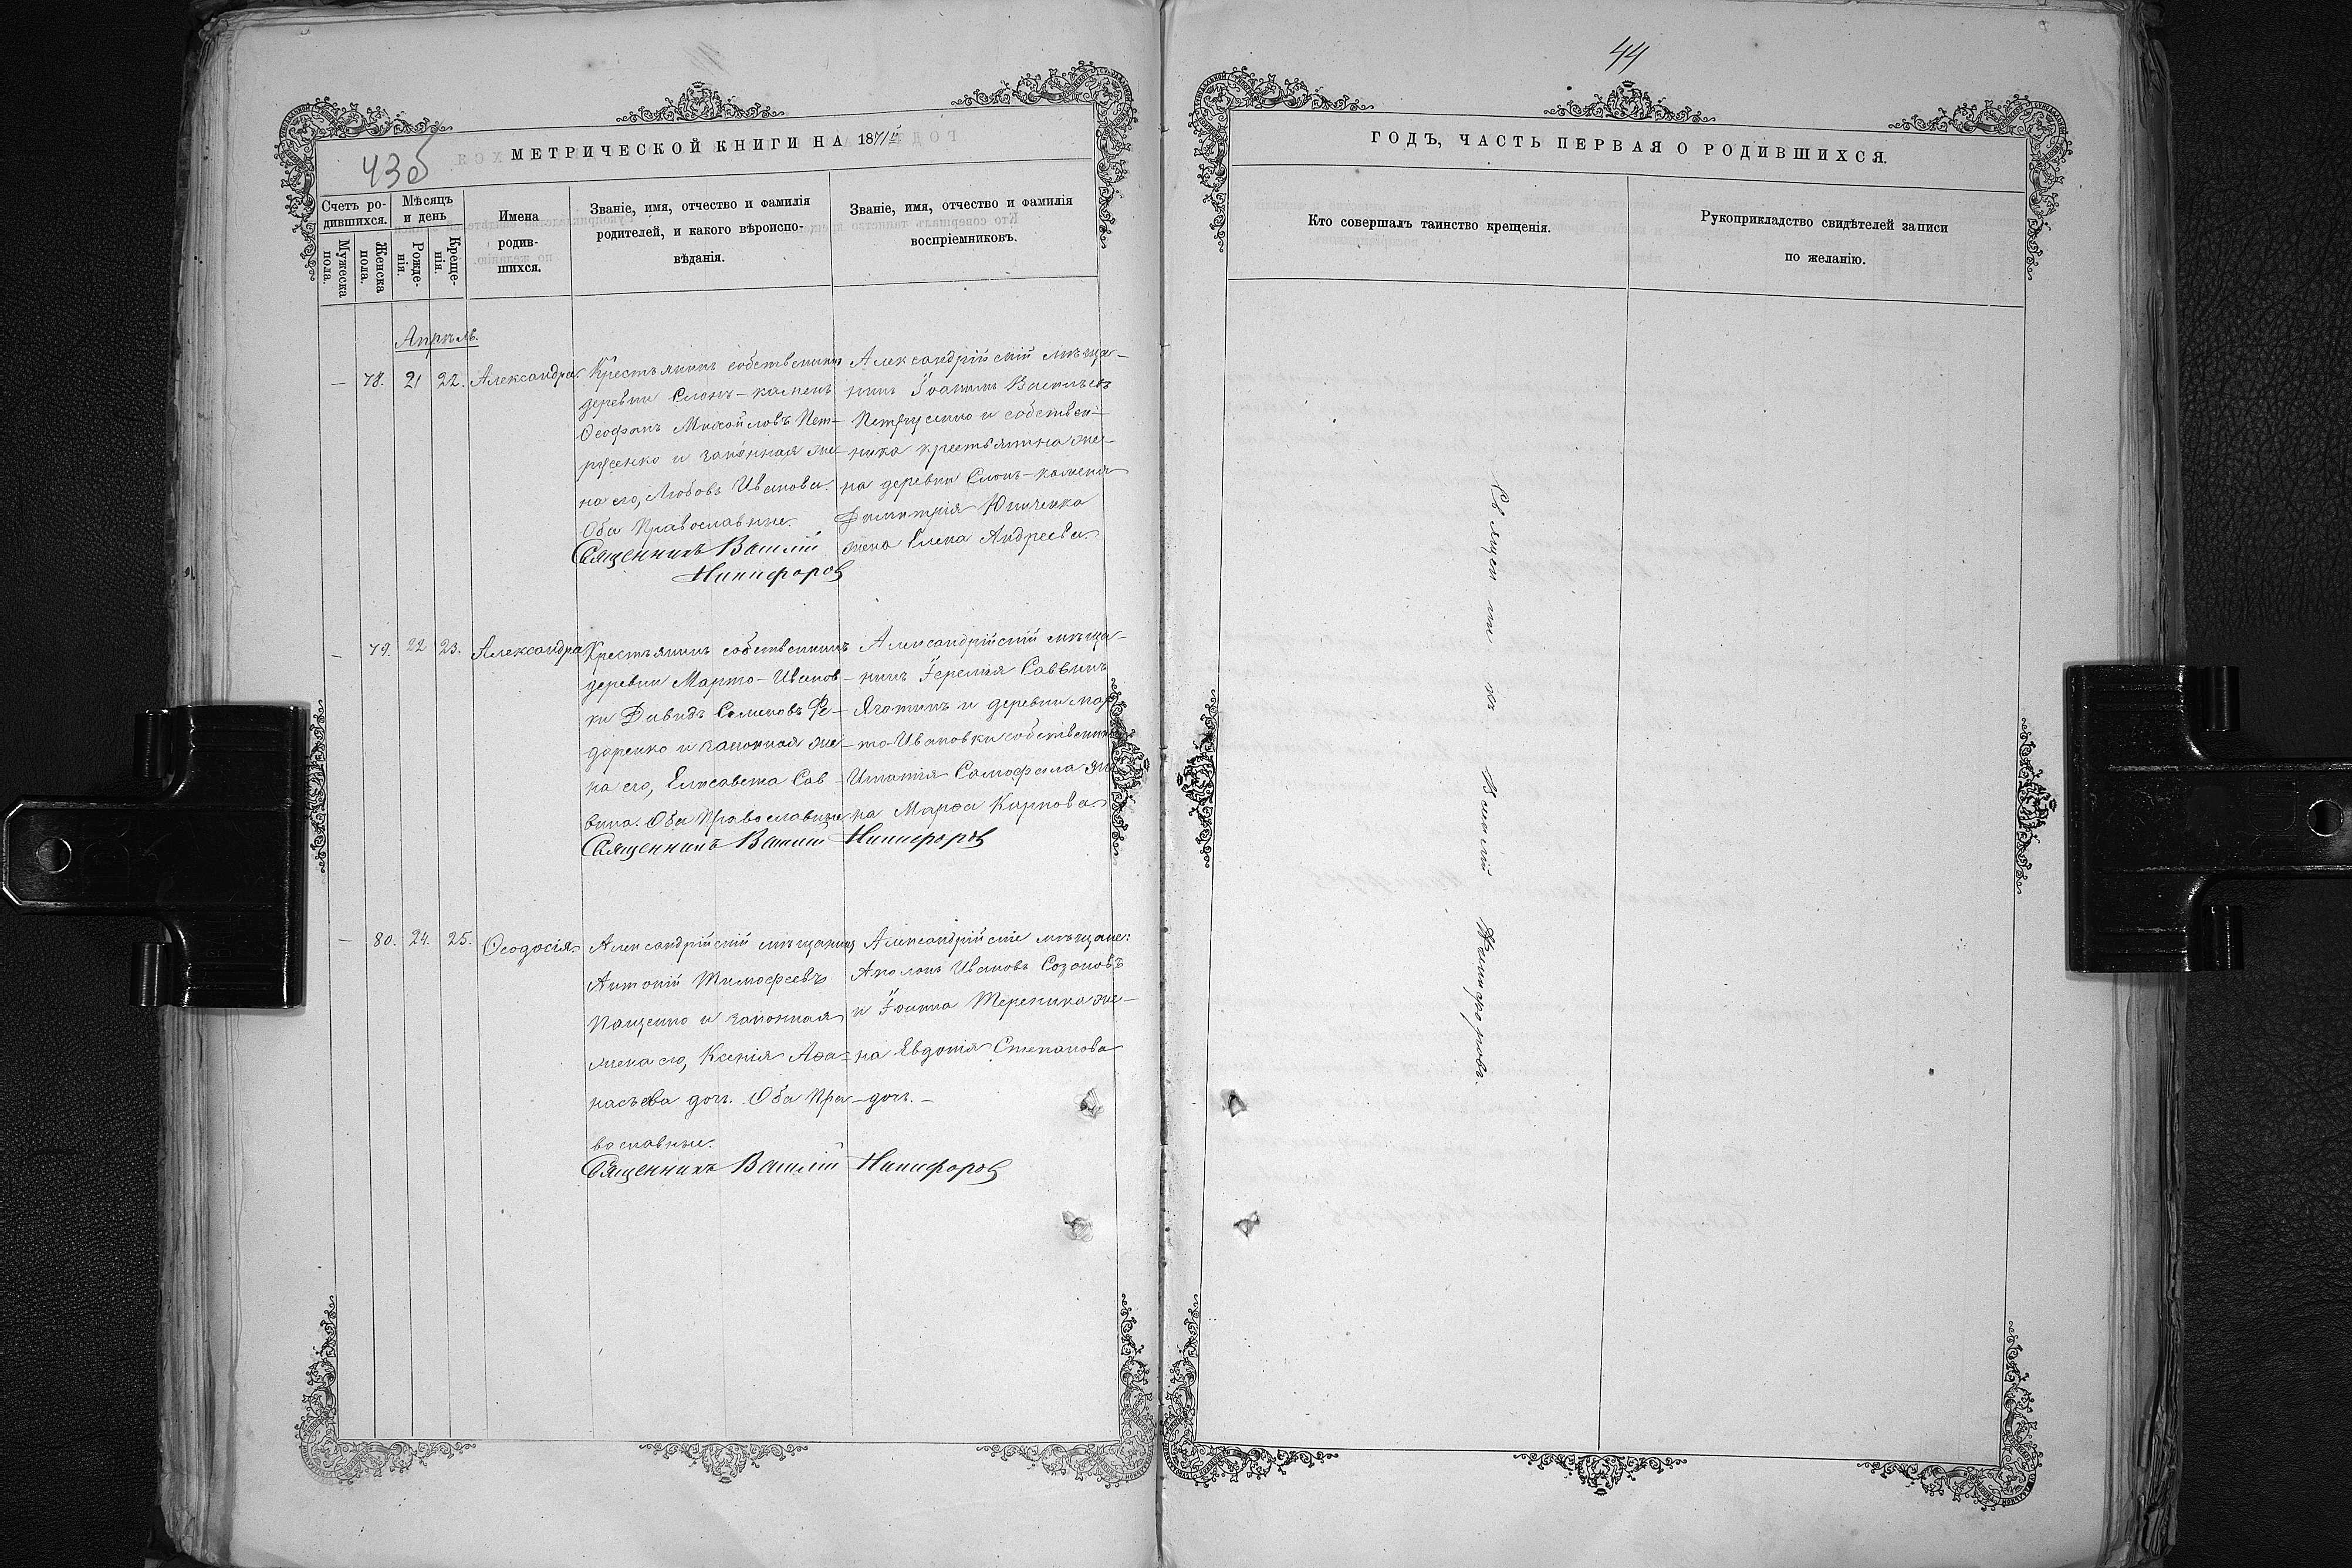 44
43б
МЕТРИЧЕСКОЙ КНИГИ НА 1871й
ГОДЪ, ЧАСТЬ ПЕРВАЯ О РОДИВШИХСЯ.
Счетъ ро-
дившихся.
Мужеска
пола.
Женска
пола.
Мѣсяцъ
и день
Рожде-
нія.
Креще-
нія.
Имена
родив-
шихся.
Званіе, имя, отчество и фамилія
родителей, и какого вѣроиспо-
вѣданія.
Званіе, имя, отчество и фамилія
воспріемниковъ.
Кто совершалъ таинство крещенія.
Рукоприкладство свидѣтелей записи
по желанію.
Апрѣль.
— 78. 21 22. Александра.
Крестьянинъ собственникъ
деревни Слонъ-камень
Ѳеофанъ Михайловъ Пет-
русенко и законная же-
на его, Любовь Иванова.
Оба Православные.
Священникъ Василій
Никифоров
Александрійскій мѣща-
нинъ Іоакимъ Васильевъ
Петрусенко и собствен-
ника крестьянина же-
на деревни Слонъ-каменя
Димитрія
жена Елена Андреева
— 79. 22 23. Александра
Крестьянинъ собственникъ
деревни Марто-Иванов-
ки Давидъ Семеновъ Фе-
доренко и законная же-
на его, Елисавета Сав-
вина. Оба Православные
Священникъ Василій Никифоров
Александрійскій мѣща-
нинъ Іеремія Саввинъ
Яготинъ и деревни мар-
то-Ивановки собственника
Игнатія Самофала же
на Марѳа Карпова
— 80. 24. 25. Ѳеодосія.
Александрійскій мѣщанинъ
Антоній Тимофеевъ
Пащенко и законная
жена его, Ксенія Аѳа-
насьева доч. Оба Пра-
вославные.
Священникъ Василій Никифоров
Александрійскіе мѣщане:
Аполонъ Ивановъ Созоновъ
и Іоанна Терепика же-
на Явдокія Степанова
доч. —
Священникъ Василій Никифоровъ.